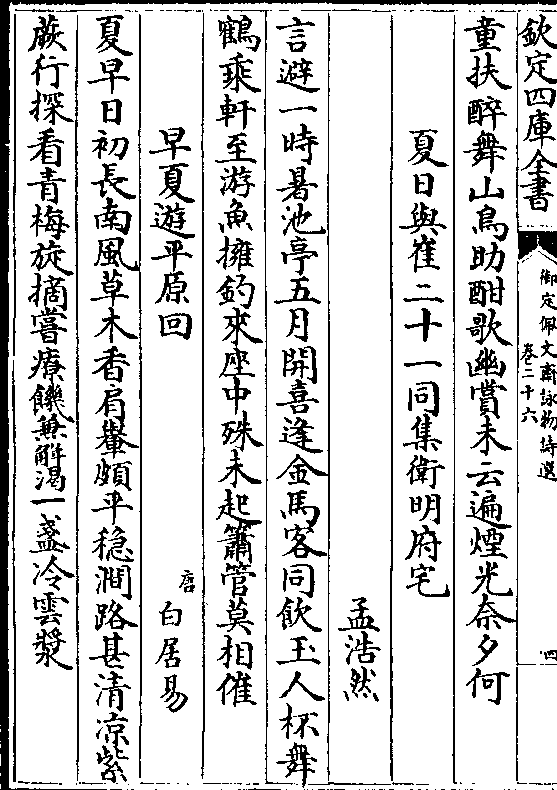 欽定四庫全書
御定佩文齋詠物詩選
卷二十六
四
童扶醉舞山鳥助酣歌幽賞未云遍煙光奈夕何
夏日與崔二十一同集衛明府宅
孟浩然
言避一時暑池亭五月開喜逢金馬客同飲玉人杯舞
鶴乘軒至游魚擁釣來座中殊未起簫管莫相催
早夏遊平原回
唐
白居易
夏早日初長南風草木香肩轝頗平穏澗路甚清凉紫
蕨行採看青梅旋摘嘗療饑兼解渴一盞冷雲漿